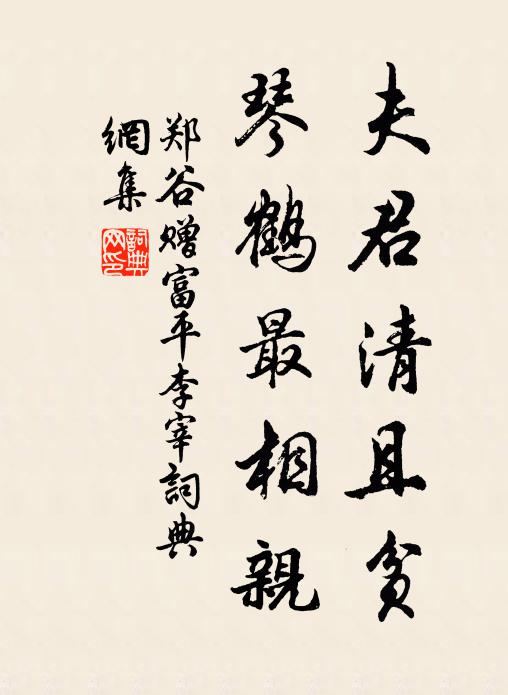 夫君清且贫
琴鹤最相親
郑谷赠富平李宰詞典
網集
詞典
网印